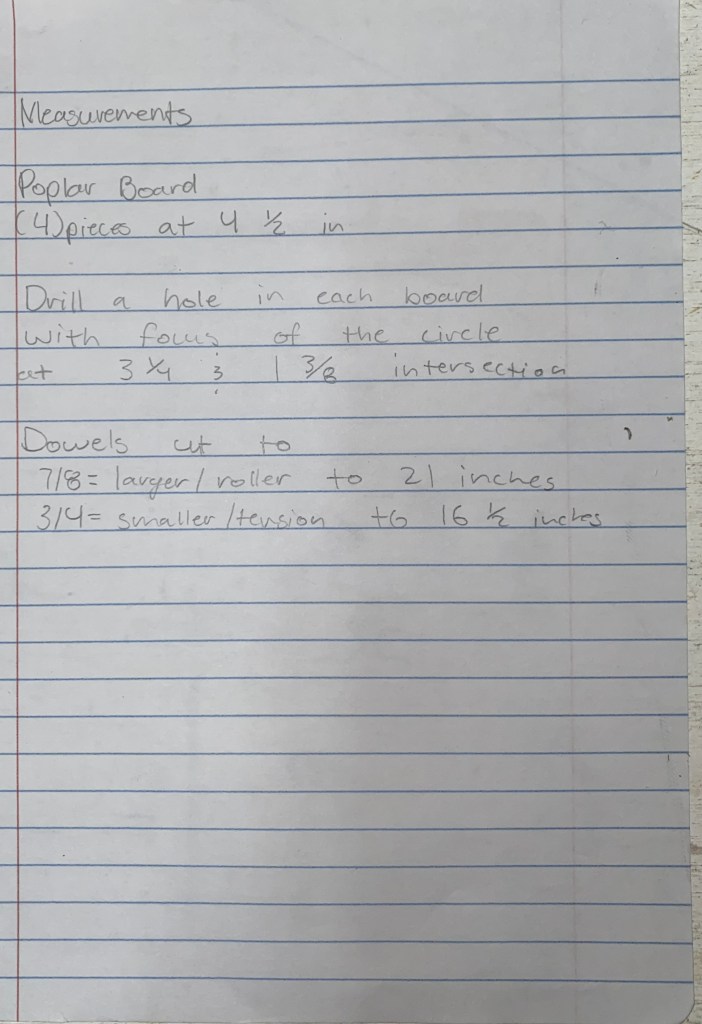 Measurements
Poplar Board
(4) pieces at 4 ½ in
Drill a hole in each board
with focus of the circle
at 3 ¼ & 1 3/8 intersection
Dowels cut to
7/8 = larger / roller to 21 inches
3/4 = smaller / tension to 16 ½ inches